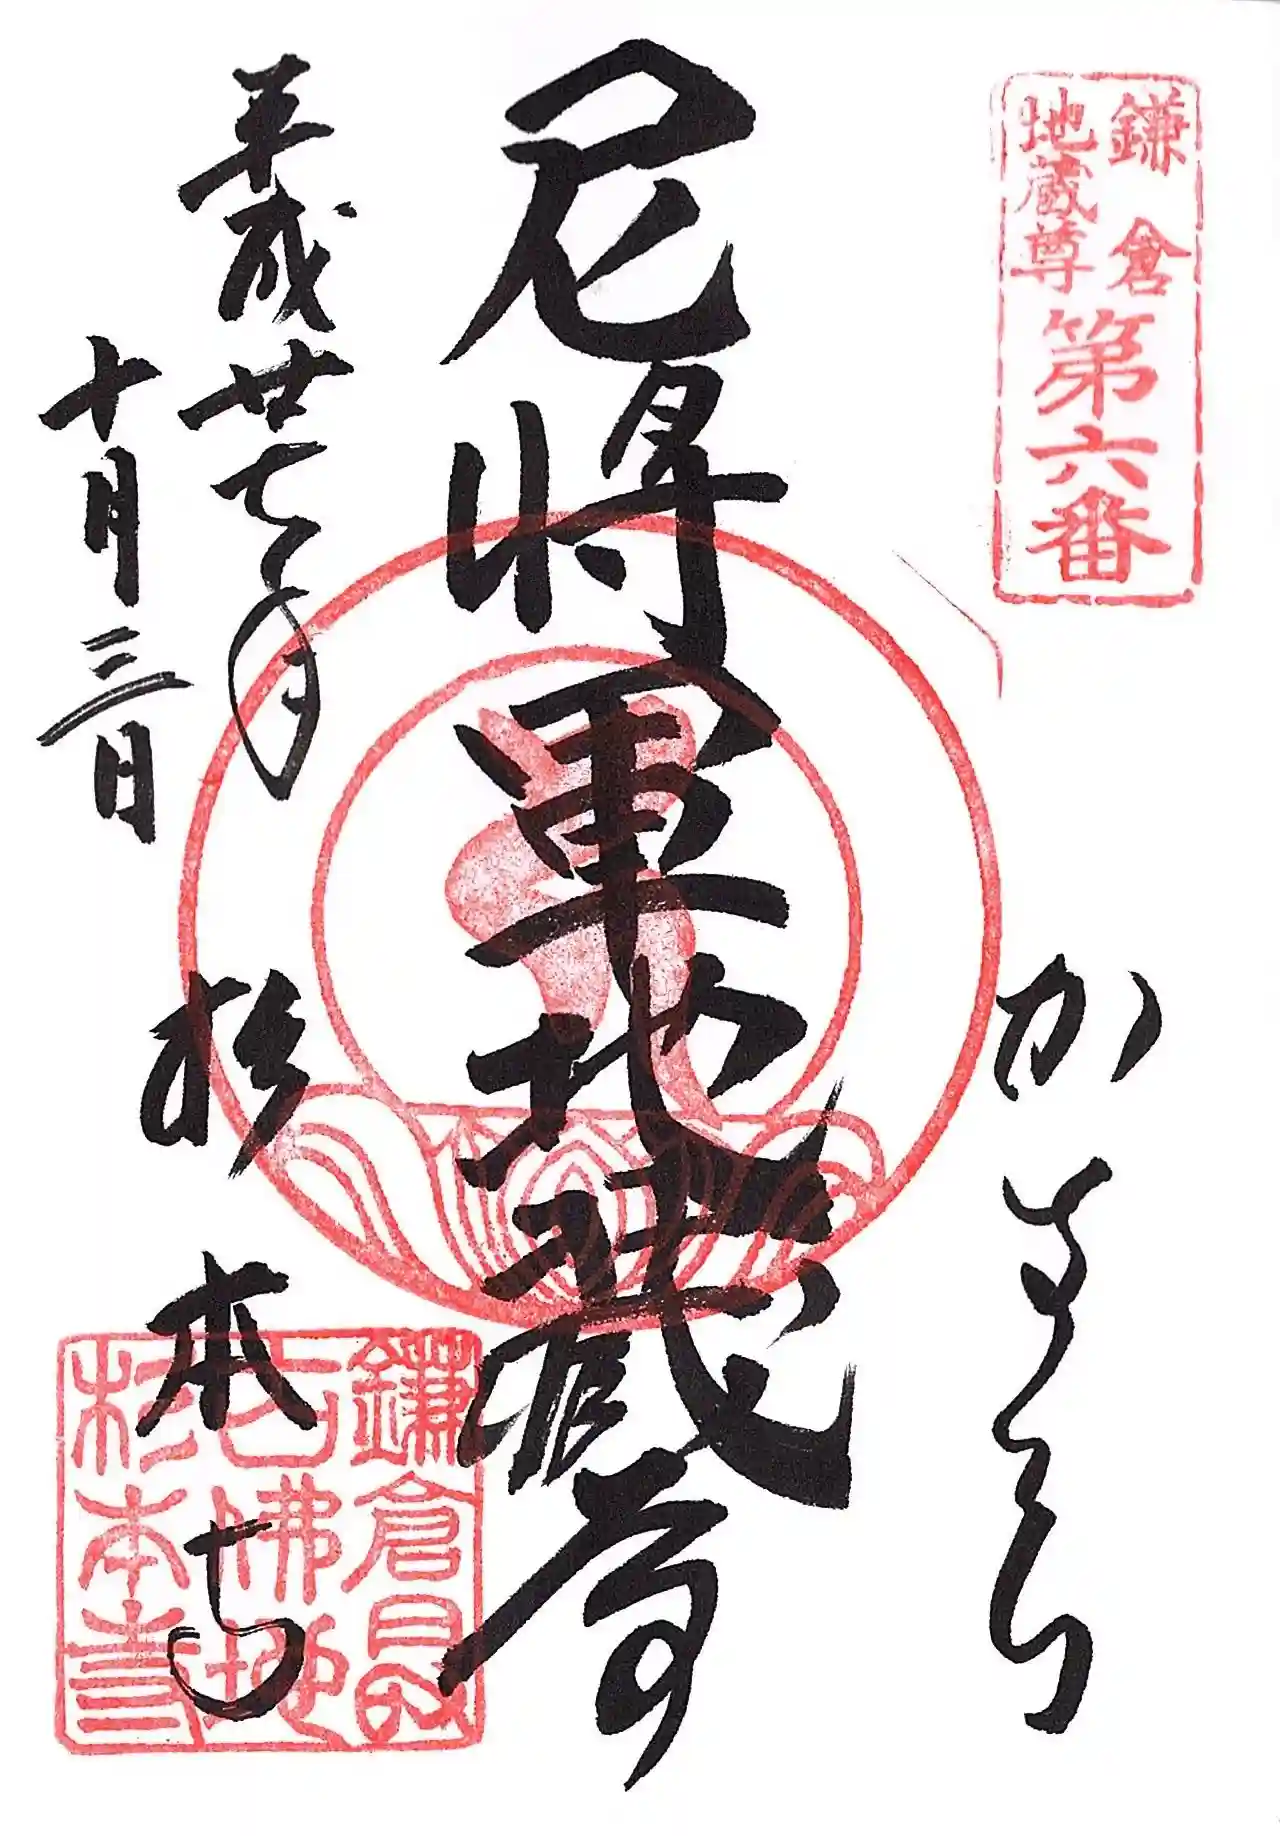 鎌倉
地蔵尊
第六番
かまくら
尼将軍地蔵尊
平成廿七年
十月三日
杉本寺
鎌倉最
古佛地
杉本寺